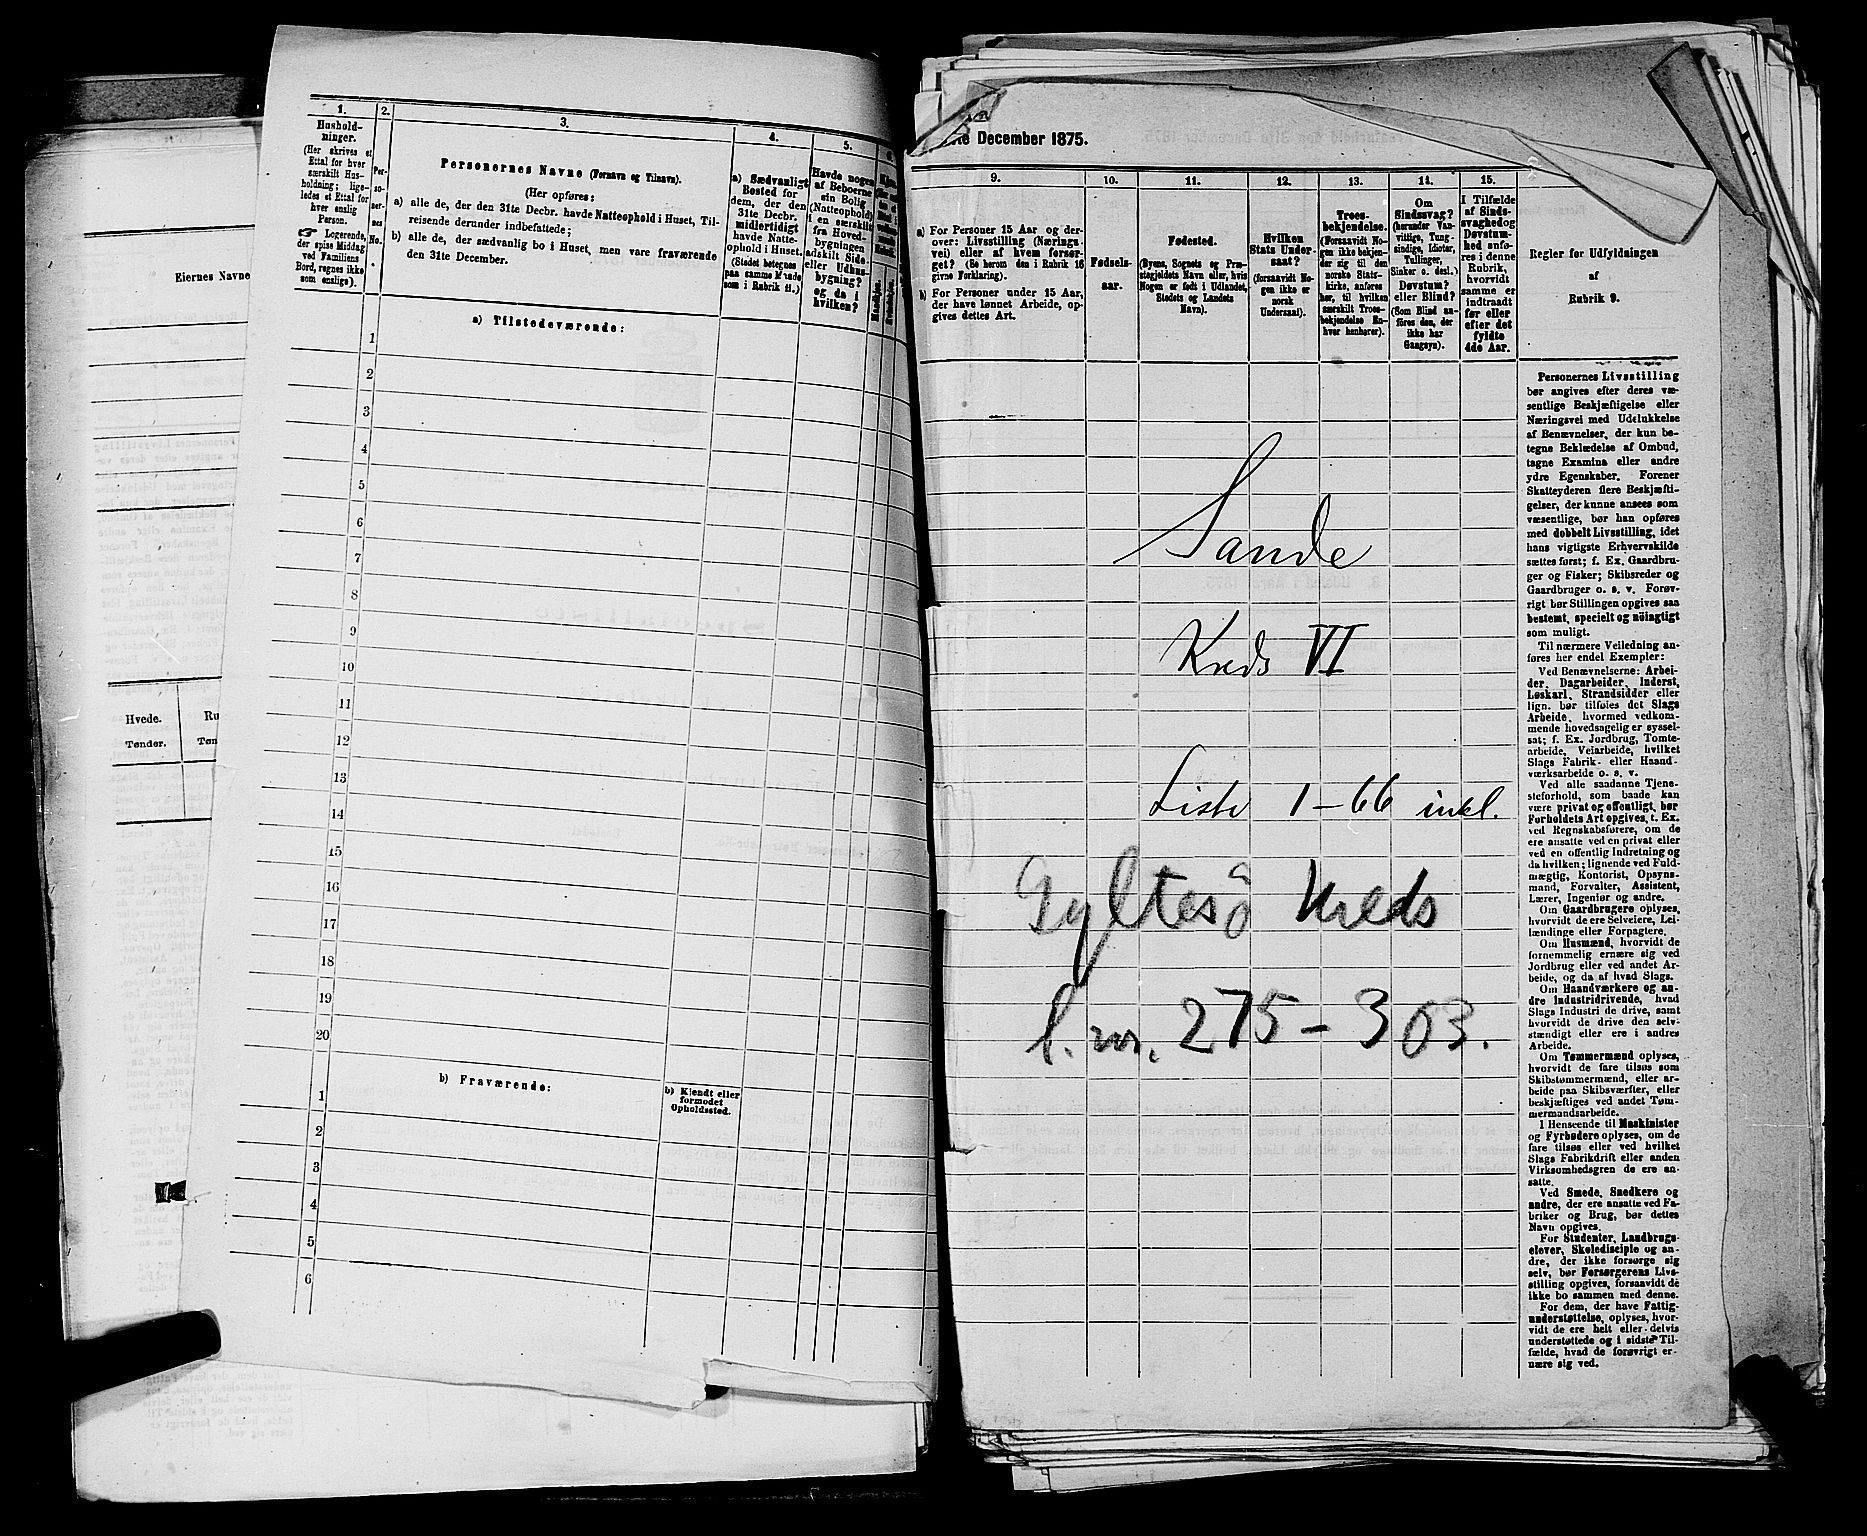 Eiernes Navne
Hvede.
Tønder.
1.
Hushold-
ninger.
(Her skrives et
Ettal for hver
særskilt Hus-
holdning; lige-
ledes et Ettal for
hver enslig
Person.
☞ Logerende,
der spise Middag
ved Familiens
Bord, regnes ikke
som enslige).
2.
Per-
so-
ner-
nes
No.
3.
Personernes Navne (Fornavn og Tilnavn).
(Her opføres:
a) alle de, der den 31te Decbr. havde Natteophold i Huset, Til-
reisende derunder indbefattede;
b) alle de, der sædvanlig bo i Huset, men vare fraværende
den 31te December.
4.
a) Sædvanligt
Bosted for
dem, der den
31te Decbr.
midlertidigt
havde Natte-
ophold i Huset.
(Stedet betegnes
paa samme Maade
som i Rubrik 11.)
5.
Havde nogen
af Beboerne
sin Bolig
(Natteophold)
i en særskilt
fra Hoved-
bygningen
adskilt Side-
eller Udhus-
bygning?
og da i
hvilken?
a) Tilstedeværende:
1
2
3
4
5
6
7
8
9
10
11
12
13
14
15
16
17
18
19
20
b) Fraværende:
b) Kjendt eller
formodet
Opholdssted.
1
2
3
4
5
6
December 1875.
9.
a) For Personer 15 Aar og der-
over: Livsstilling (Nærings-
vei) eller af hvem forsør-
get? (Se herom den i Rubrik 16
givne Forklaring).
b) For Personer under 15 Aar,
der have lønnet Arbeide, op-
gives dettes Art.
10.
Fødsels-
aar.
11.
Fødested.
(Byens, Sognets og Præ-
stegjeldets Navn eller, hvis
Nogen er født i Udlandet,
Stedets og Landets
Navn).
12.
Hvilken
Stats Under-
saat?
(forsaavidt No-
gen ikke er
norsk
Undersaat).
13.
Troes-
bekjendelse.
(Forsaavidt No-
gen ikke bekjen-
der sig til den
norske Stats-
kirke, anføres
her, til hvilken
særskilt Troes-
bekjendelse En-
hver henhører).
14.
Om
Sindssvag?
(herunder Van-
vittige, Tung-
sindige, Idioter,
Tullinger,
Sinker o. desl.)
Døvstum?
eller Blind?
(Som Blind an-
føres den, der
ikke har
Gangsyn).
15.
I Tilfælde
af Sinds-
svaghed og
Døvstum-
hed anfø-
res i denne
Rubrik,
hvorvidt
samme er
indtraadt
før eller
efter det
fyldte
4de Aar.
Regler for Udfyldningen
af
Rubrik 9.
Sande
Kreds VI
Liste 1-66 inkl.
Gyltesö Kreds
l. nr. 275-303.
Personernes Livsstilling
bør angives efter deres væ-
sentlige Beskjæftigelse eller
Næringsvei med Udelukkelse
af Benævnelser, der kun be-
tegne Beklædelse af Ombud,
tagne Examina eller andre
ydre Egenskaber. Forener
Skatteyderen flere Beskjæfti-
gelser, der kunne ansees som
væsentlige, bør han opføres
med dobbelt Livsstilling, idet
hans vigtigste Erhvervskilde
sættes først; f. Ex. Gaardbru-
ger og Fisker; Skibsreder og
Gaardbruger o. s. v. Forøv-
rigt bør Stillingen opgives saa
bestemt, specielt og nöiagtigt
som muligt.
Til nærmere Veiledning an-
føres her endel Exempler:
Ved Benævnelserne: Arbei-
der, Dagarbeider, Inderst,
Løskarl, Strandsidder eller
lign. bør tilføies det Slags
Arbeide, hvormed vedkom-
mende hovedsagelig er syssel-
sat; f. Ex. Jordbrug, Tomte-
arbeide, Veiarbeide, hvilket
Slags Fabrik- eller Haand-
værksarbeide o. s. v.
Ved alle saadanne Tjene-
steforhold, som baade kan
være privat og offentligt, bør
Forholdets Art opgives, t. Ex.
ved Regnskabsførere, om de
ere ansatte ved en privat eller
ved en offentlig Indretning og
da hvilken; lignende ved Fuld-
mægtig, Kontorist, Opsyns-
mand, Forvalter, Assistent,
Lærer, Ingeniør og andre.
Om Gaardbrugere oplyses,
hvorvidt de ere Selveiere, Lei-
lændinge eller Forpagtere.
Om Husmænd, hvorvidt de
fornemmelig ernære sig ved
Jordbrug eller ved andet Ar-
beide, og da af hvad Slags.
Om Haandværkere og an-
dre Industridrivende, hvad
Slags Industri de drive, samt
hvorvidt de drive den selv-
stændigt eller ere i andres
Arbeide.
Om Tømmermænd oplyses,
hvorvidt de fare tilsøs som
Skibstømmermænd, eller ar-
beide paa Skibsværfter, eller
beskjæftiges ved andet Tøm-
mermandsarbeide.
I Henseende til Maskinister
og Fyrbødere oplyses, om de
fare tilsøs eller ved hvilket
Slags Fabrikdrift eller anden
Virksomhedsgren de ere an-
satte.
Ved Smede, Snedkere og
andre, der ere ansatte ved Fa-
briker og Brug, bør dettes
Navn opgives.
For Studenter, Landbrugs-
elever, Skoledisciple og an-
dre, der ikke forsørge sig
selv, bør Forsørgerens Livs-
stilling opgives, forsaavidt de
ikke bo sammen med denne.
For dem, der have Fattig-
understøttelse, oplyses, hvor-
vidt de ere helt eller delvis
understøttede og i sidste Til-
fælde, hvad de forøvrigt er-
nære sig ved.